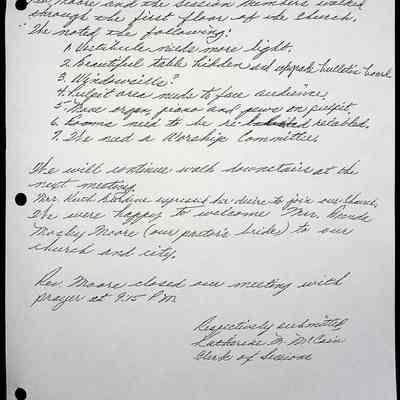 Rev. Moore and the Session members walked
through the first floor of the Church.
The noted the following:
1. Vestibule needs more light.
2. beautiful table hidden and upgrade bulletin board
3. Windowsills?
4. Pulpit area made to face audience.
5. New organ, piano and pews on pulpit
6. Rooms need to be re- labeled.
7. The need a Worship Committee.
The will continue walk downstairs at the
next meeting.
Mrs. Ruth expressed her desire to join our Church.
We were happy to welcome Mrs.
Mosby Moore (our pastor's bride) to our
church and city.
Rev. Moore closed our meeting with
prayer at 9:15 P.M.
Respectively submitted,
Katherine M. McCain
Clerk of Session